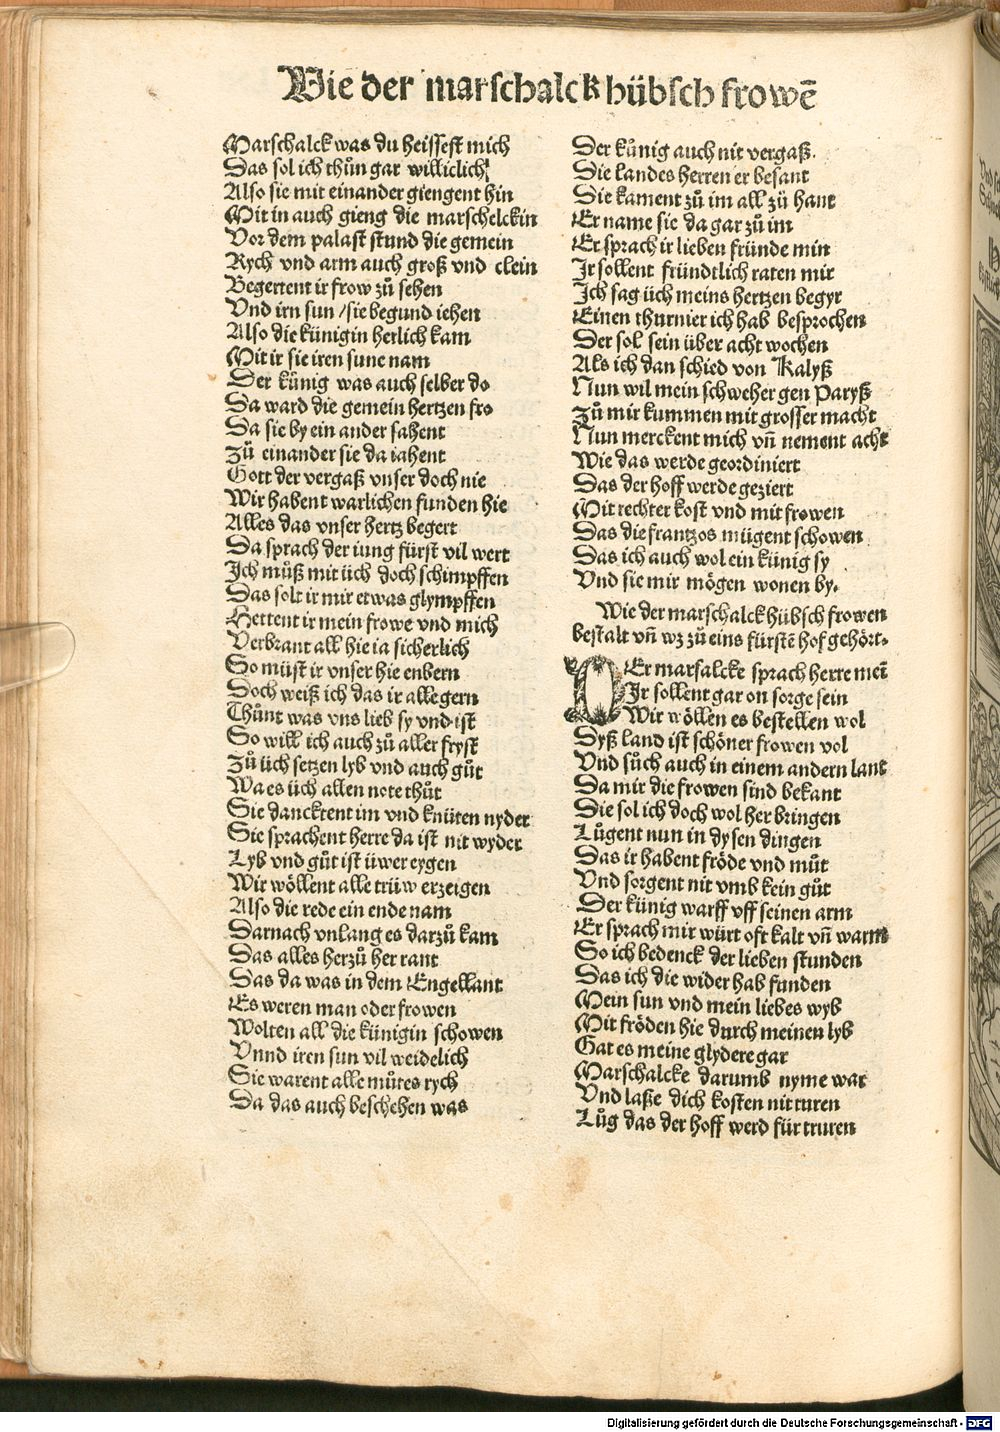 Wie der marschalck hübsch frowẽ
Marschalck was du heissest mich
Das sol ich thůn gar williclich
Also sie mit einander giengent hin
Mit in auch gieng die marschelckin
Vor dem palast stund die gemein
Rych vnd arm auch groß vnd clein
Begertent ir frow zů sehen
Vnd irn sun / sie begund iehen
Also die künigin herlich kam
Mit ir sie iren sune nam
Der künig was auch selber do
Da ward die gemein hertzen fro
Da sie by ein ander sahent
Zů einander sie da iahent
Gott der vergaß vnser doch nie
Wir habent warlichen funden hie
Alles das vnser hertz begert
Da sprach der iung fürst vil wert
Ich můß mit üch doch schimpffen
Das solt ir mir etwas glympffen
Hettent ir mein frowe vnd mich
Verbrant all hie ia sicherlich
So müst ir vnser hie enbern
Doch weiß ich das ir alle gern
Thůnt was vns lieb sy vnd ist
So will ich auch zů aller fryst
Zů üch setzen lyb vnd auch gůt
Wa es üch allen note thůt
Sie dancktent im vnd knüten nyder
Sie sprachent herre da ist nit wyder
Lyb vnd gůt ist üwer eygen
Wir wöllent alle trüw erzeigen
Also die rede ein ende nam
Darnach vnlang es darzů kam
Das alles herzů her rant
Das da was in dem Engellant
Es weren man oder frowen
Wolten all die künigin schowen
Vnnd iren sun vil weidelich
Sie warent alle můtes rych
Da das auch beschehen was
Der künig auch nit vergaß.
Die landes herren er besant
Die kament zů im all zů hant
Er name sie da gar zů im
Er sprach ir lieben fründe min
Ir sollent fründtlich raten mir
Ich sag üch meins hertzen begyr
Einen thurnier ich hab besprochen
Der sol sein über acht wochen
Als ich dan schied von Kalyß
Nun wil mein schweher gen Paryß
Zů mir kummen mit grosser macht
Nun merckent mich vñ nement acht
Wie das werde geordiniert
Das der hoff werde geziert
Mit rechter kost vnd mit frowen
Das die frantzos mügent schowen
Das ich auch wol ein künig sy
Vnd sie mir mögen wonen by.
Wie der marschalck hübsch frowen
bestalt vñ wz zů eins fürstẽ hof gehört.
DEr marsalcke sprach herre meĩ
Ir sollent gar on sorge sein
Wir wöllen es bestellen wol
Dyß land ist schöner frowen vol
Vnd sůch auch in einem andern lant
Da mir die frowen sind bekant
Die sol ich doch wol her bringen
Lůgent nun in dysen dingen
Das ir habent fröde vnd můt
Vnd sorgent nit vmb kein gůt
Der künig warff vff seinen arm
Er sprach mir würt oft kalt vñ warm
So ich bedenck der lieben stunden
Das ich die wider hab funden
Mein sun vnd mein liebes wyb
Mit fröden hie durch meinen lyb
Gat es meine glydere gar
Marschalcke darumb nyme war
Vnd laße dich kosten nit turen
Lůg das der hoff werd für truren
Digitalisierung gefördert durch die Deutsche Forschungsgemeinschaft - DFG